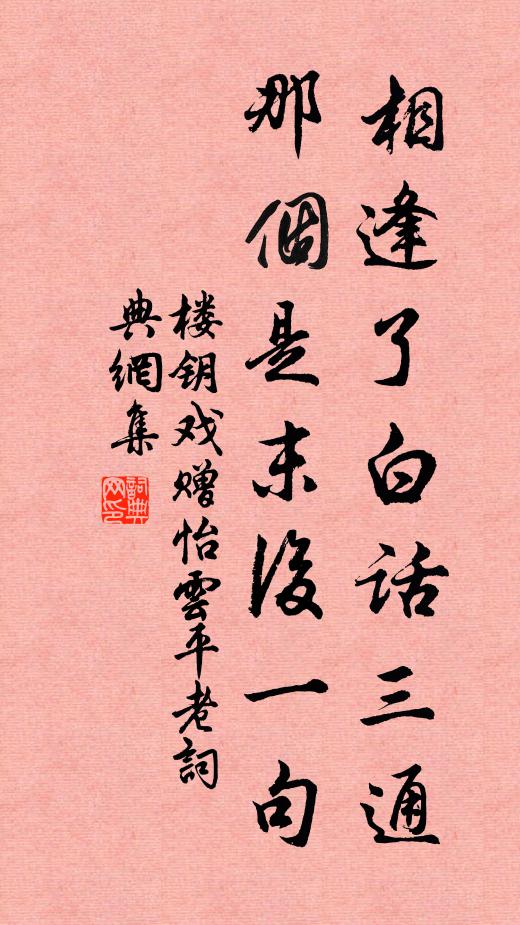 相逢了白话三通
那個是末後一句
楼钥戏赠怡雲平老詞
典網集
詞典网印